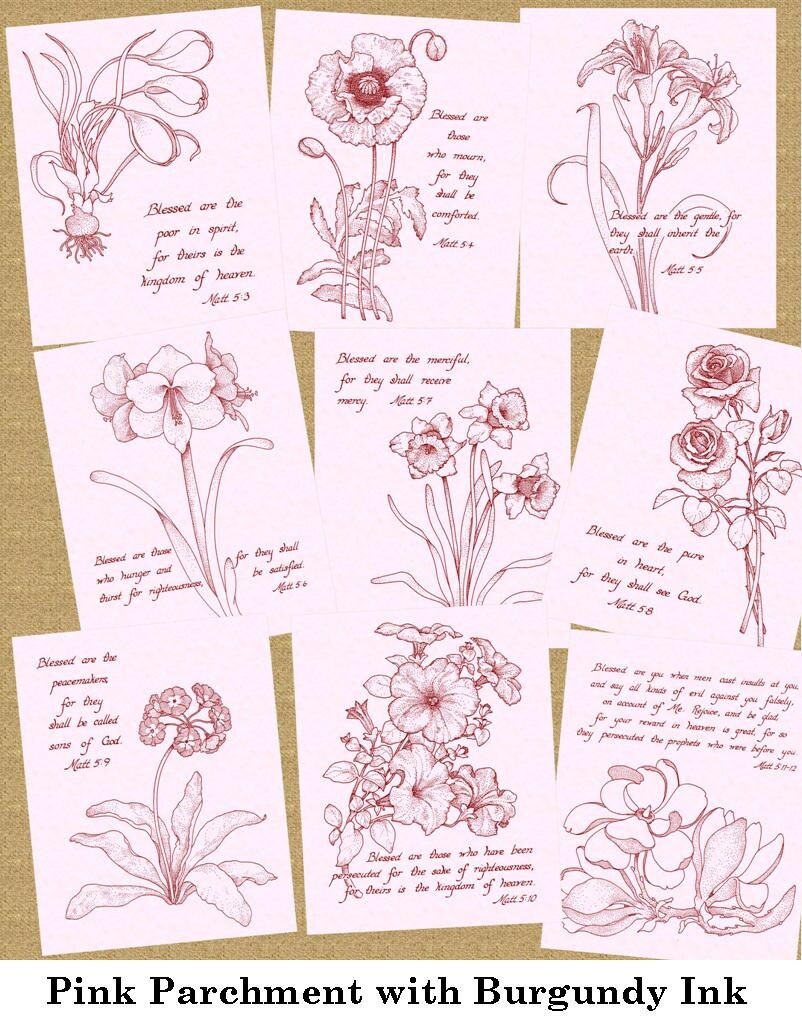 Blessed are the
poor in spirit,
for theirs is the
kingdom of heaven.
Matt 5:3
Blessed are
those
who mourn,
for they
shall be
comforted.
Matt 5:4
Blessed are the gentle, for
they shall inherit the
earth.
Matt 5:5
Blessed are those
who hunger and
thirst for righteousness,
for they shall
be satisfied.
Matt 5:6
Blessed are the merciful,
for they shall receive
mercy. Matt 5:7
Blessed are the pure
in heart,
for they shall see God.
Matt 5:8
Blessed are the
peacemakers,
for they
shall be called
sons of God.
Matt 5:9
Blessed are those who have been
persecuted for the sake of righteousness,
for theirs is the kingdom of heaven.
Matt 5:10
Blessed are you when men cast insults at you,
and say all kinds of evil against you falsely,
on account of Me. Rejoice, and be glad,
for your reward in heaven is great, for so
they persecuted the prophets who were before you.
Matt 5:11-12
Pink Parchment with Burgundy Ink